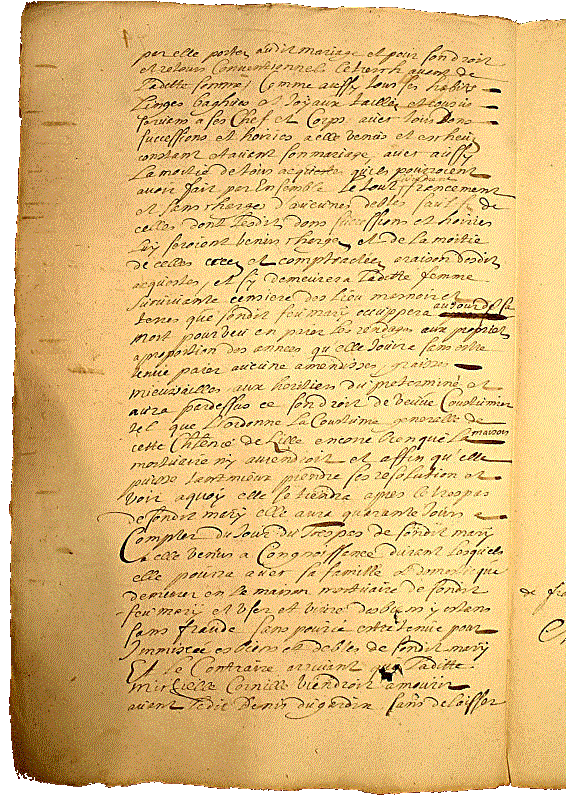 par elle portez audit mariage et pour son droit
et retour Conventionnel le tierch avant de
Ladette somme, Comme aussy tous ses habits
Linges baghues et Joyaux taillez et cousus
servans a ses Chef et Corps avecq tous dons
successions et hoiries a elle venus et escheus
constant et avant son mariage, avecq aussy
La moitié de tous acquestes qu'ils pourroient
avoir fait par Ensemble Le tout franchement
et sans charge d'aucunes debtes sauf de
celles dont lesdits dons successions et hoiries
Luy seroient venus chargez et de la moitié
de celles creez et contractées a raison desdits
acquestes, et sy demeurera Ladette femme
survivante censiere des Lieu manoir et
terres que sondit feu mary occuppera au jour de sa
mort pourveu en paier les rendages aux propriet
a proportion des années qu'elle Jouira sans estre
tenue paier aucune amendises graisses
mieuvailles aux heritiers du predeterminé et
aura perdessus ce son droit de veuve Coustumier
tel que L'ordonne La Coustume generalle de
cette Chlenie de Lille encore bien que La maison
mortuaire n'y viendroit et affin qu'elle
puisse tant mieux prendre ses resolution et
voir a quoy elle se tiendra apres le trespas
de sondit mary elle aura quarante Jours a
Compter du Jour du trespas de sondit mary
a elle venus a Congnoissance durant lesquels
elle pourra avecq sa famille et domestique
demeurer en la maison mortuaire de sondit
feu mary et user et vivre des biens y estans
sans fraude sans pour ce estre tenue pour
Immiscée es biens et debtes de sondit mary
Et le Contraire arrivant que Ladette
Michielle Cornille viendroit a mourir
avant ledit Denis du gardin sans delaisser
de fra